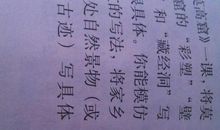 高窟》一课,将莫
窟的“彩塑”“壁
”和“藏经洞”写
具体。你能模仿
的写法,将家乡
处自然景物(或
古迹)写具体